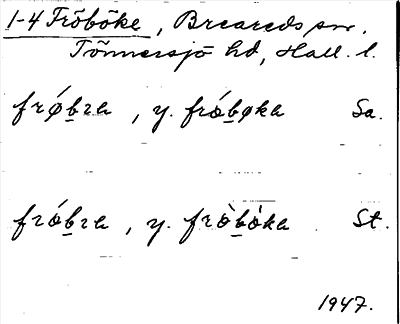 1-4 Fröböke, Breareds sn.
Tönnersjö hd, Hall. l.
frǿb̲ra, y. frǿb̲øka Sa.
frǿb̲ra, y. frø̀b̲ø̀ka St.
1947.